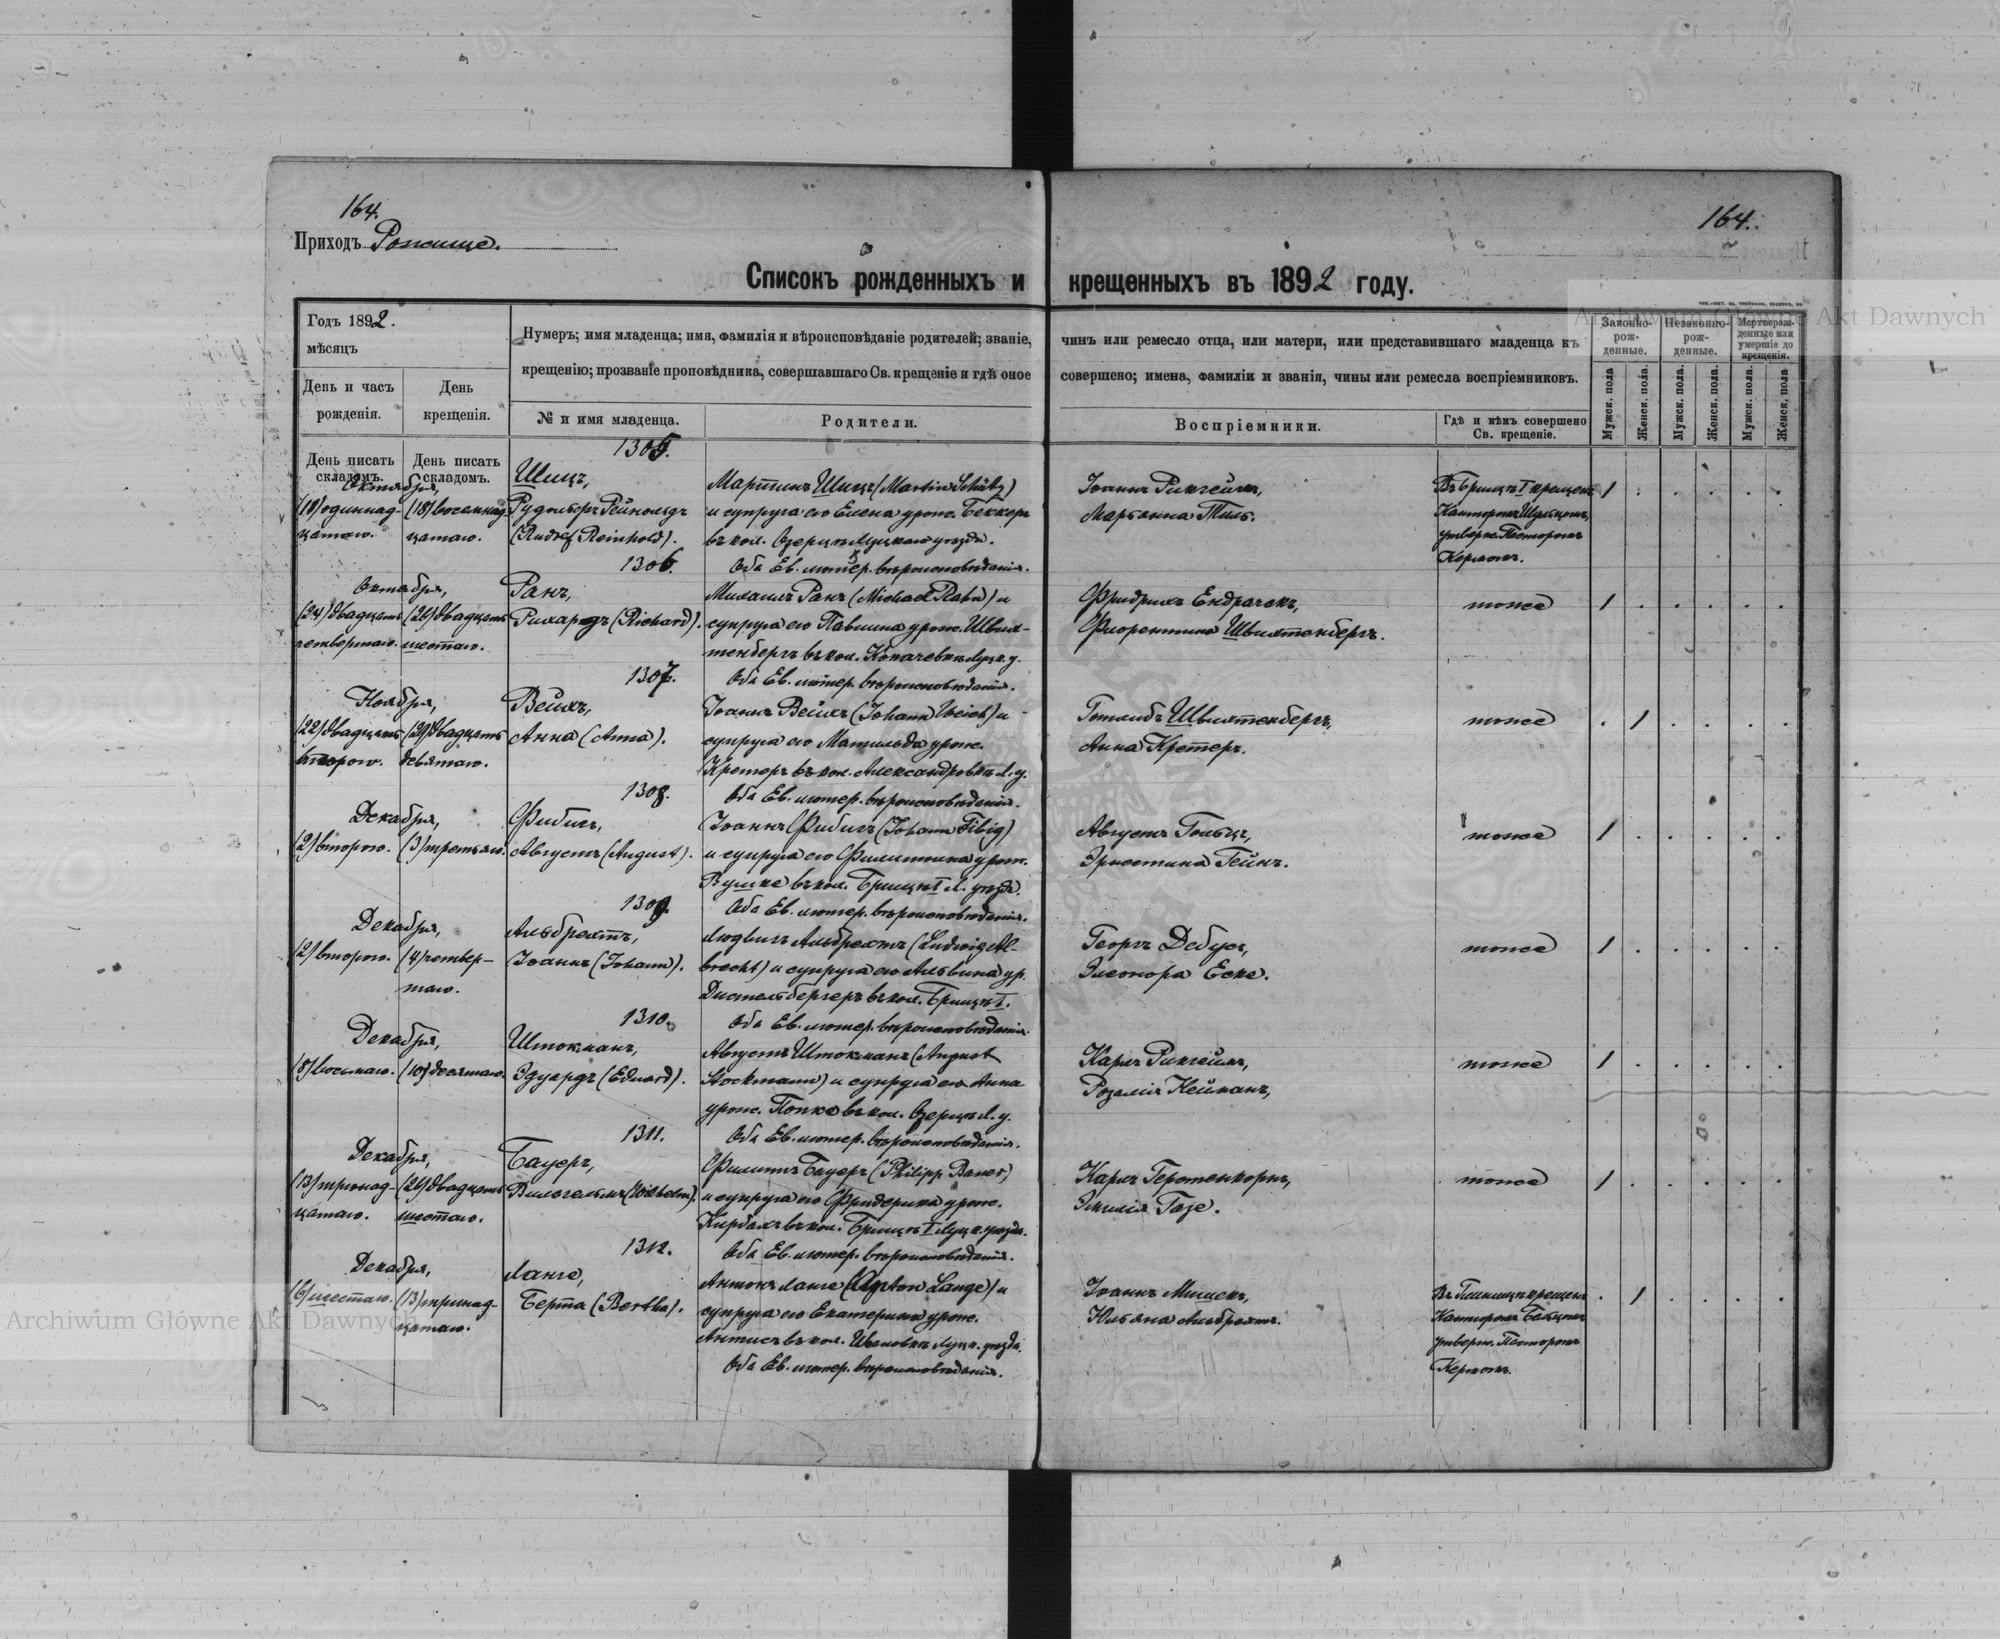 164.
164.
Приходъ Рожище.
Списокъ рожденныхъ и крещенныхъ въ 1892 году.
Годъ 1892.
мѣсяцъ
День и часъ рожденія.
День крещенія.
Нумеръ; имя младенца; имя, фамилія и вѣроисповѣданіе родителей; званіе, чинъ или ремесло отца, или матери, или представившаго младенца къ
крещенію; прозваніе проповѣдника, совершавшаго Св. крещеніе и гдѣ оное совершено; имена, фамиліи и званія, чины или ремесла воспріемниковъ.
№ и имя младенца.
Родители.
Воспріемники.
Гдѣ и кѣмъ совершено Св. крещеніе.
Законно-рож-денные.
Незаконно-рож-денные.
Мертворож-денные или умершіе до крещенія.
Мужск. пола
Женск. пола.
Мужск. пола.
Женск. пола.
Мужск. пола.
Женск. пола
День писать складомъ.
День писать складомъ.
1305.
Октября,
(11) одиннад-цатаго.
(18) восемнад-цатаго.
Шицъ,
Рудольфъ Рейнольдъ
(Rudolf Reinhold).
Мартинъ Шицъ (Martin Schütz)
и супруга его Елена урож. Беккеръ
въ кол. Озерцѣ Луцкаго уѣзда.
Оба Ев. лютер. вѣроисповѣданія.
Іоаннъ Рингеймъ,
Марьянна Тиль.
Въ Брищѣ I крещенъ
Канторомъ
утверж. Пасторомъ
Кермомъ.
1
1306.
Октября,
(24) двадцать четвертаго.
(26) двадцать шестаго.
Ранъ,
Рихардъ (Richard).
Михаилъ Ранъ (Michael Rahn) и
супруга его Павлина урож. Швих-
тенбергъ въ кол. Копачевкѣ Луцк. у.
Оба Ев. лютер. вѣроисповѣданія.
Фридрихъ Ендрачекъ,
Флорентина Швихтенбергъ.
тоже
1
1307.
Ноября,
(22) двадцать втораго.
(29) двадцать девятаго.
Вейхъ,
Анна (Anna).
Іоаннъ Вейхъ (Johann Weich) и
супруга его Матильда урож.
Кретеръ въ кол. Александровкѣ Л. у.
Оба Ев. лютер. вѣроисповѣданія.
Готлибъ Швихтенбергъ,
Анна Кретеръ.
тоже
1
1308.
Декабря,
(2) втораго.
(3) третьяго.
Фибигъ,
Августъ (August).
Іоаннъ Фибигъ (Johann Fibig)
и супруга его Филипина урож.
въ кол. Брищѣ I Л. уѣзда.
Оба Ев. лютер. вѣроисповѣданія.
Августъ Гольцъ,
Эрнестина Гейнъ.
тоже
1
1309.
Декабря,
(2) втораго.
(4) четвер-таго.
Альбрехтъ,
Іоаннъ (Johann).
Людвигъ Альбрехтъ (Ludwig Al-
brecht) и супруга его Альвина ур.
Дистельбергеръ въ кол. Брищѣ I.
Оба Ев. лютер. вѣроисповѣданія.
Георгъ Дебусъ,
Элеонора Еске.
тоже
1
1310.
Декабря,
(8) восьмаго.
(10) десятаго.
Штокманъ,
Эдуардъ (Eduard).
Августъ Штокманъ (August
Stockmann) и супруга его Анна
урож. Попке въ кол. Озерцѣ Л. у.
Оба Ев. лютер. вѣроисповѣданія.
Карлъ Рингеймъ,
Розалія Нейманъ,
тоже
1
1311.
Декабря,
(13) тринад-цатаго.
(26) двадцать шестаго.
Бауеръ,
Вильгельмъ (Wilhelm).
Филиппъ Бауеръ (Philipp Bauer)
и супруга его Фридерика урож.
Кирбахъ въ кол. Брищѣ I Луцк. уѣзда.
Оба Ев. лютер. вѣроисповѣданія.
Карлъ Герстенкорнъ,
Эмилія Газе.
тоже
1
1312.
Декабря,
(6) шестаго.
(13) тринад-цатаго.
Ланге,
Берта (Bertha).
Антонъ Ланге (Anton Lange) и
супруга его Екатерина урож.
въ кол. Ивановкѣ Луцк. уѣзда.
Оба Ев. лютер. вѣроисповѣданія.
Іоаннъ
Юльяна Альбрехтъ.
крещена
Канторомъ
утверж. Пасторомъ
Кермомъ.
1
Archiwum Główne Akt Dawnych
Archiwum Główne Akt Dawnych